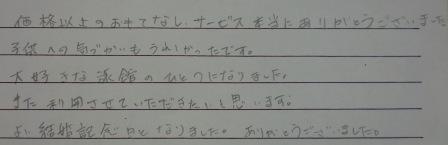 価格以上のおもてなし、サービス本当にありがとうございました
子供への気づかいもうれしかったです。
大好きな旅館のひとつになりました。
また利用させていただきたいと思います。
よい結婚記念日となりました。ありがとうございました。